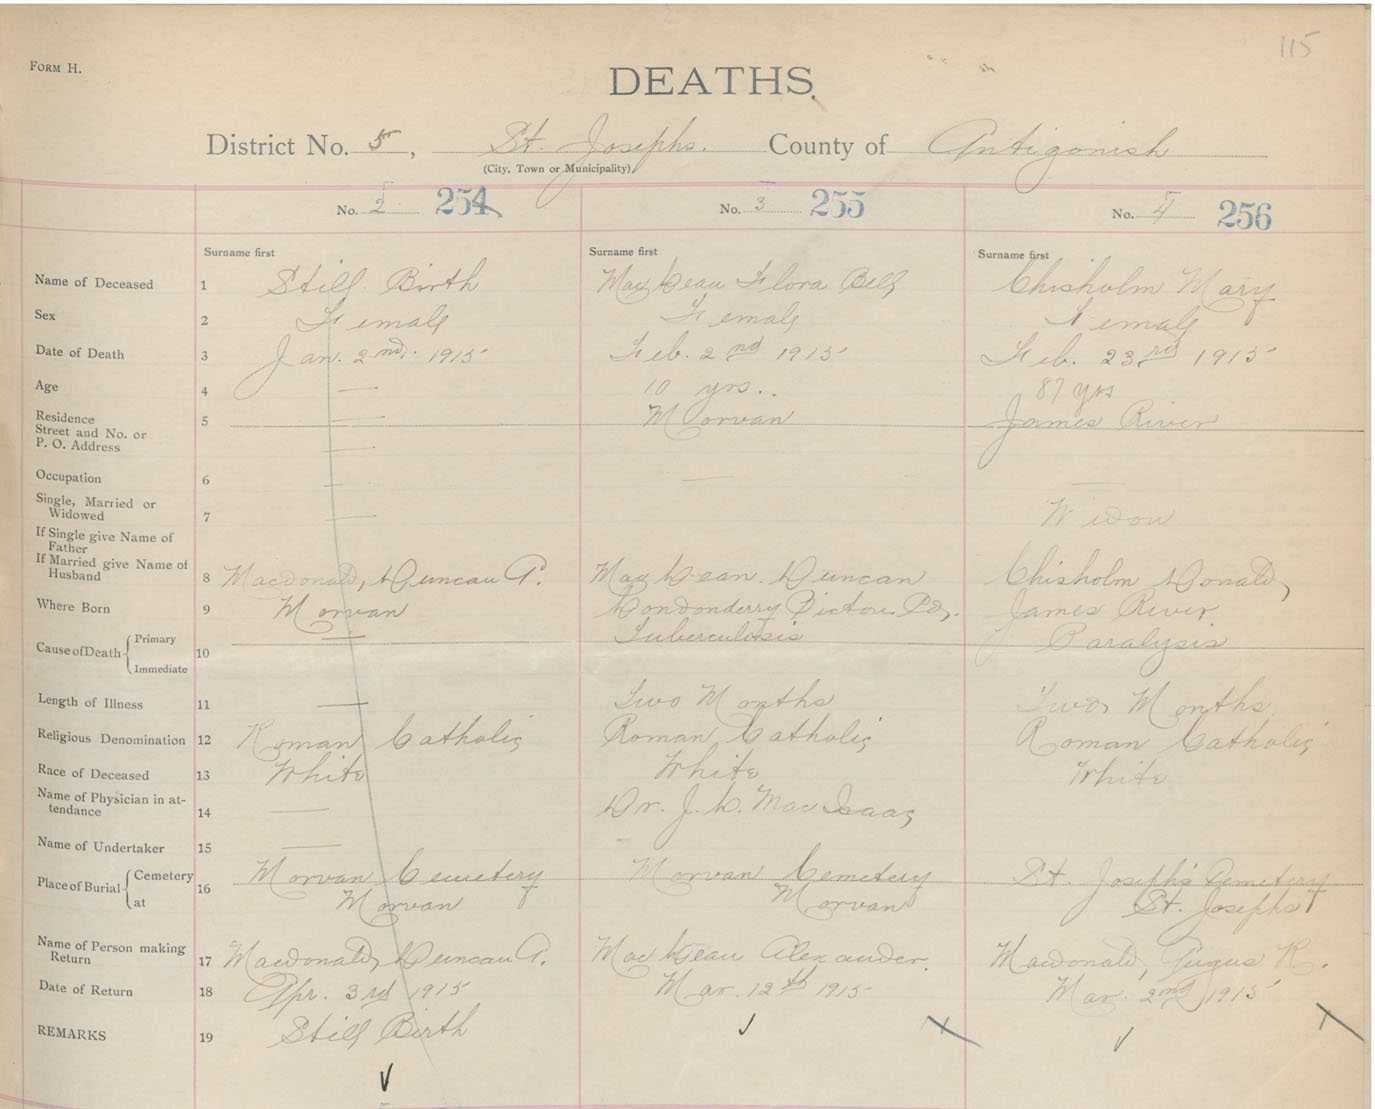 115
FORM H.
DEATHS.
District No. 5, St. Josephs. County of Antigonish
(City, Town or Municipality)
No. 2 254 No. 3 255 No. 4 256
Surname first Surname first Surname first
Name of Deceased 1 Still Birth MacLean Flora Bell Chisholm Mary
Sex 2 Female Female Female
Date of Death 3 Jan. 2nd. 1915 Feb. 2nd 1915 Feb. 23rd 1915
Age 4 — 10 yrs.. 87 yrs
Residence 5 — Morvan James River
Street and No. or
P. O. Address —
Occupation 6 — — —
Single, Married or
Widowed 7 — Widow
If Single give Name of
Father
If Married give Name of
Husband 8 Macdonald, Duncan A. MacLean. Duncan Chisholm Donald,
Where Born 9 Morvan Londonderry Pictou Co,. James River
Cause of Death { Primary 10 — Tuberculosis Paralysis
Immediate
Length of Illness 11 — Two Months Two Months
Religious Denomination 12 Roman Catholic Roman Catholic Roman Catholic
Race of Deceased 13 White White White
Name of Physician in at-
tendance 14 — Dr. J. L. MacIsaac
Name of Undertaker 15 —
Place of Burial { Cemetery 16 Morvan Cemetery Morvan Cemetery St. Joseph's Cemetery
at Morvan Morvan St. Josephs
Name of Person making
Return 17 Macdonald, Duncan A. MacLean Alexander. Macdonald, Angus R.
Date of Return 18 Apr. 3rd 1915 Mar. 12th 1915 Mar. 2nd 1915
REMARKS 19 Still Birth